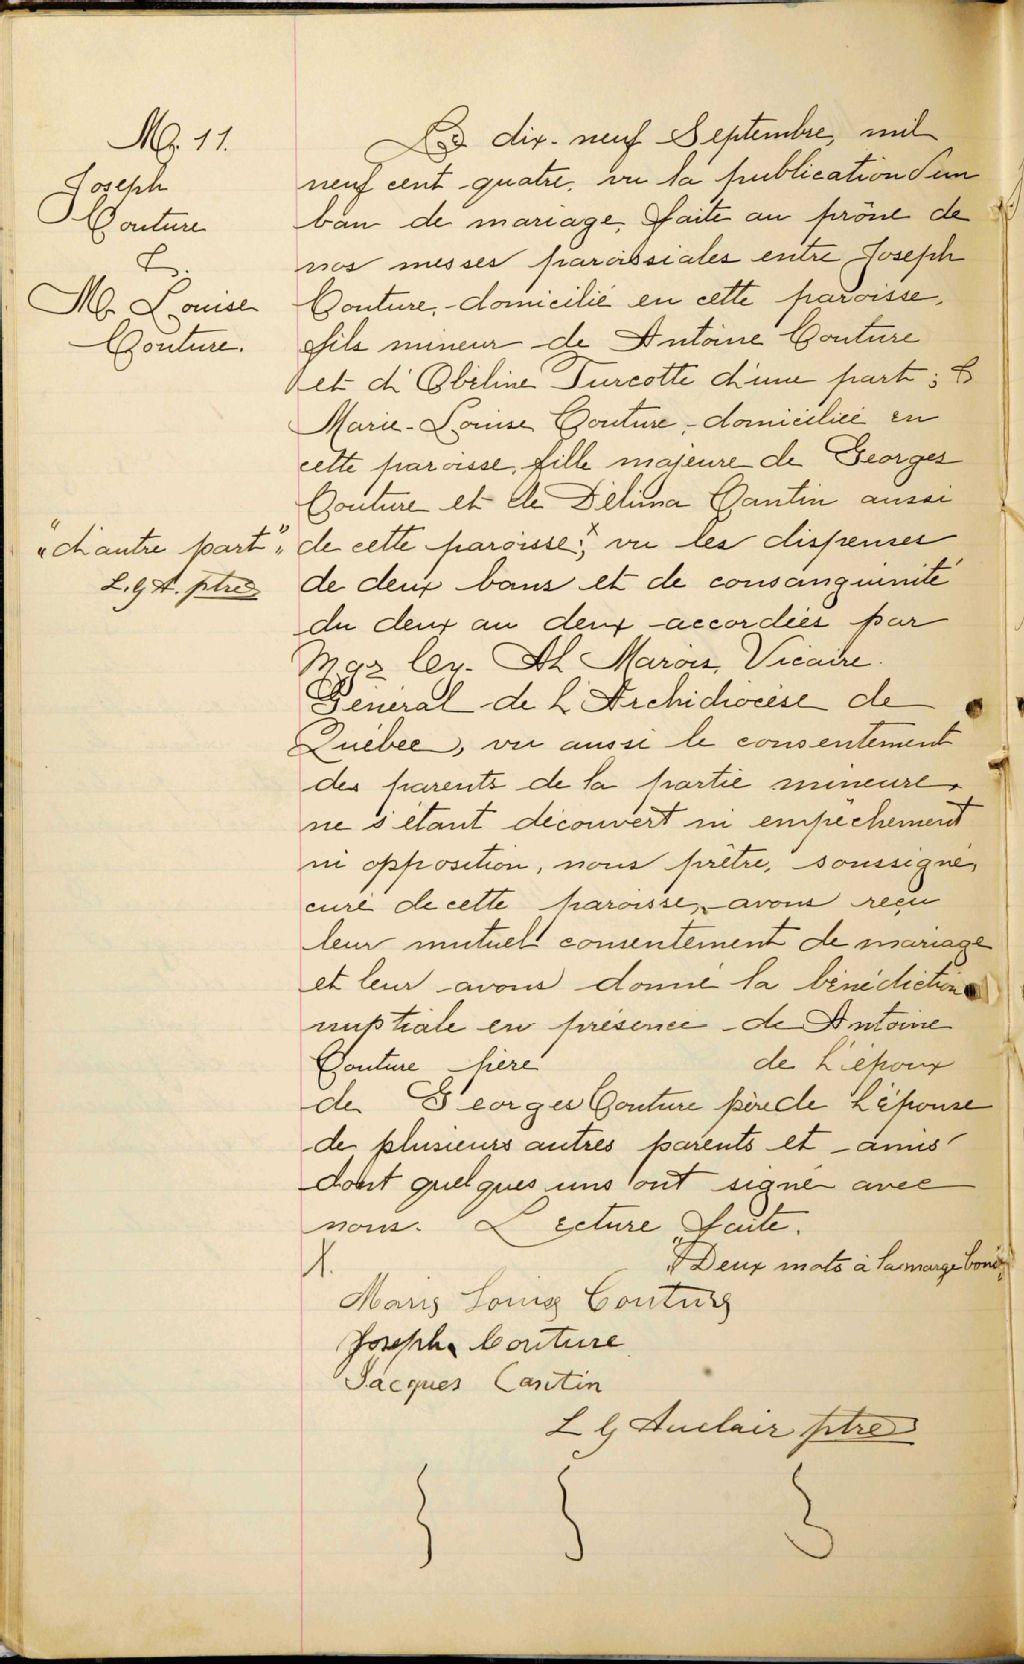 M. 11.
Joseph
Couture
&
M. Louise
Couture.
Le dix-neuf Septembre, mil
neuf cent quatre, vu la publication d'un
ban de mariage, faite au prône de
nos messes paroissiales entre Joseph
Couture, domicilié en cette paroisse,
fils mineur de Antoine Couture
et d'Obéline Turcotte d'une part; &
Marie-Louise Couture, domiciliée en
cette paroisse, fille majeure de Georges
Couture et de Délima Cantin aussi
de cette paroisse;x vu les dispenses
"d'autre part"
L. G A. ptre
de deux bans et de consanguinité
du deux au deux accordées par
Mgr Cy. Alf Marois, Vicaire
Général de l'Archidiocèse de
Québec, vu aussi le consentement
des parents de la partie mineure,
ne s'étant découvert ni empêchement
ni opposition, nous prêtre, soussigné,
curé de cette paroisse, avons reçu
leur mutuel consentement de mariage
et leur avons donné la bénédiction
nuptiale en présence de Antoine
Couture père de l'époux
de Georges Couture père de l'épouse
de plusieurs autres parents et amis
dont quelques uns ont signé avec
nous. Lecture faite.
X. "Deux mots à la marge bons"
Marie Louise Couture
Joseph Couture
Jacques Cantin
L G Auclair ptre